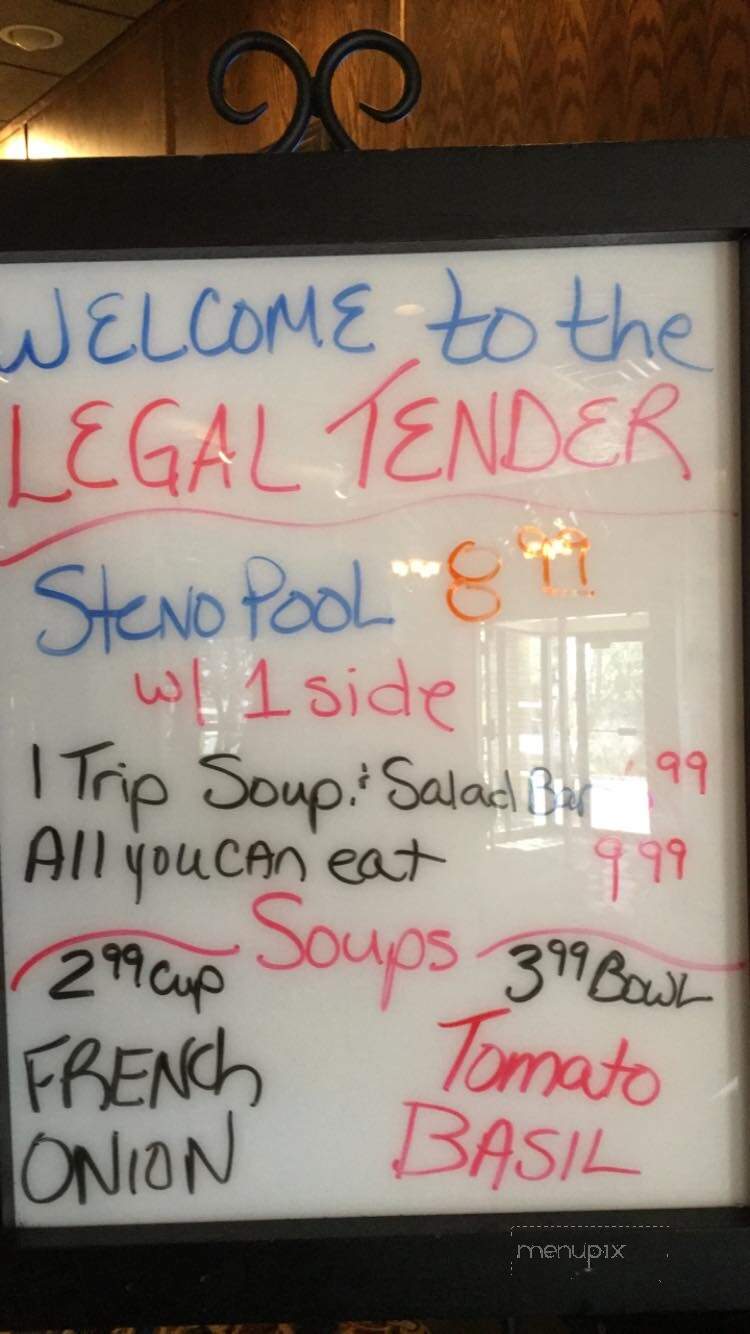 WELCOME to the
LEGAL TENDER
Steno Pool 8.99
w/ 1 side
1 Trip Soup & Salad Bar .99
All you can eat 9.99
Soups
2.99 cup 3.99 Bowl
FRENCH ONION
Tomato BASIL
menupix